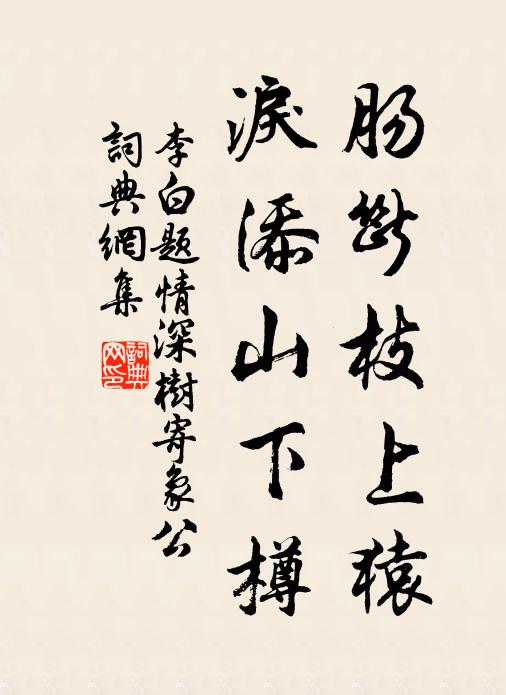 腸斷枝上猿
淚添山下樽
李白題情深樹寄象公
詞典網集
詞典網印